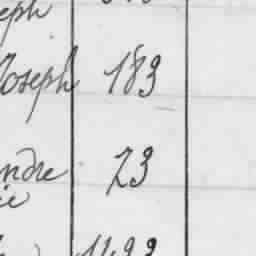 eph
Joseph 183
ndre 23
ie